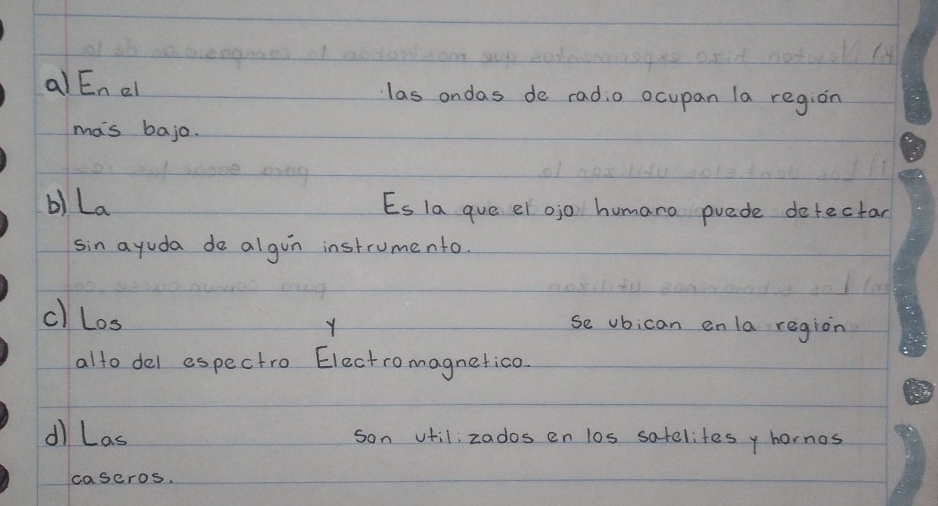 a) En el las ondas de radio ocupan la región
más bajo.
b) La Es la que el ojo humano puede detectar
sin ayuda de algún instrumento.
c) Los y se ubican en la región
alto del espectro Electromagnetico.
d) Las son utilizados en los satelites y hornos
caseros.